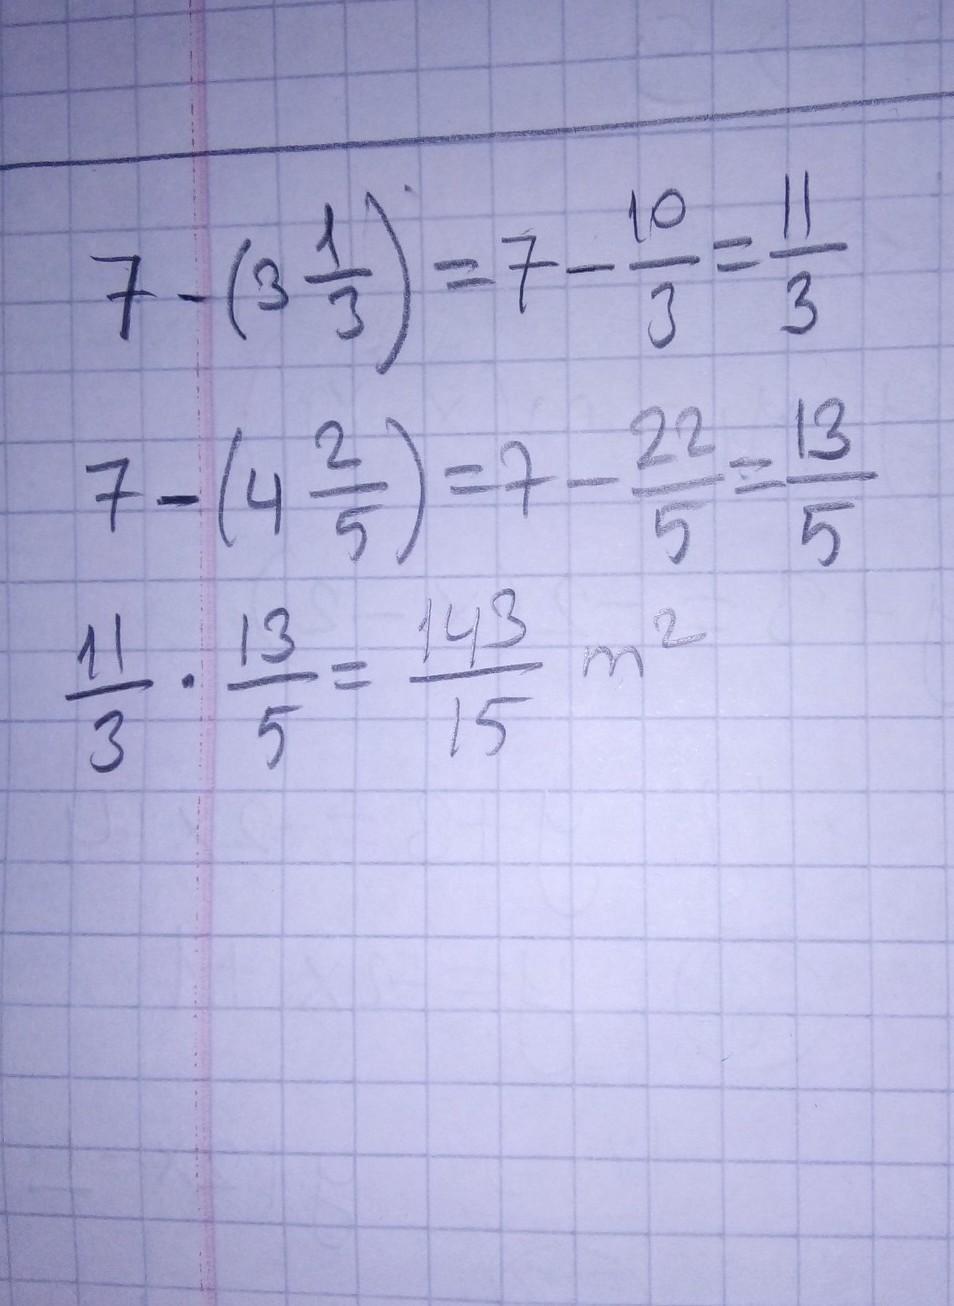 7 - (3 1/3) = 7 - 10/3 = 11/3
7 - (4 2/5) = 7 - 22/5 = 13/5
11/3 · 13/5 = 143/15 m²